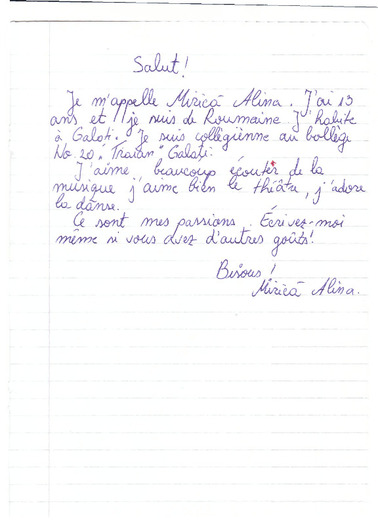 Salut!
Je m'appelle Mirică Alina. J'ai 13
ans et je suis de Roumaine. J'habite
à Galați. Je suis collégienne au collège
No 20 "Traian" Galați.
J'aime beaucoup écouter de la
musique j'aime bien le théâtre, j'adore
la danse.
Ce sont mes passions. Écrivez-moi
même si vous avez d'autres goûts!
Bisous!
Mirică Alina.